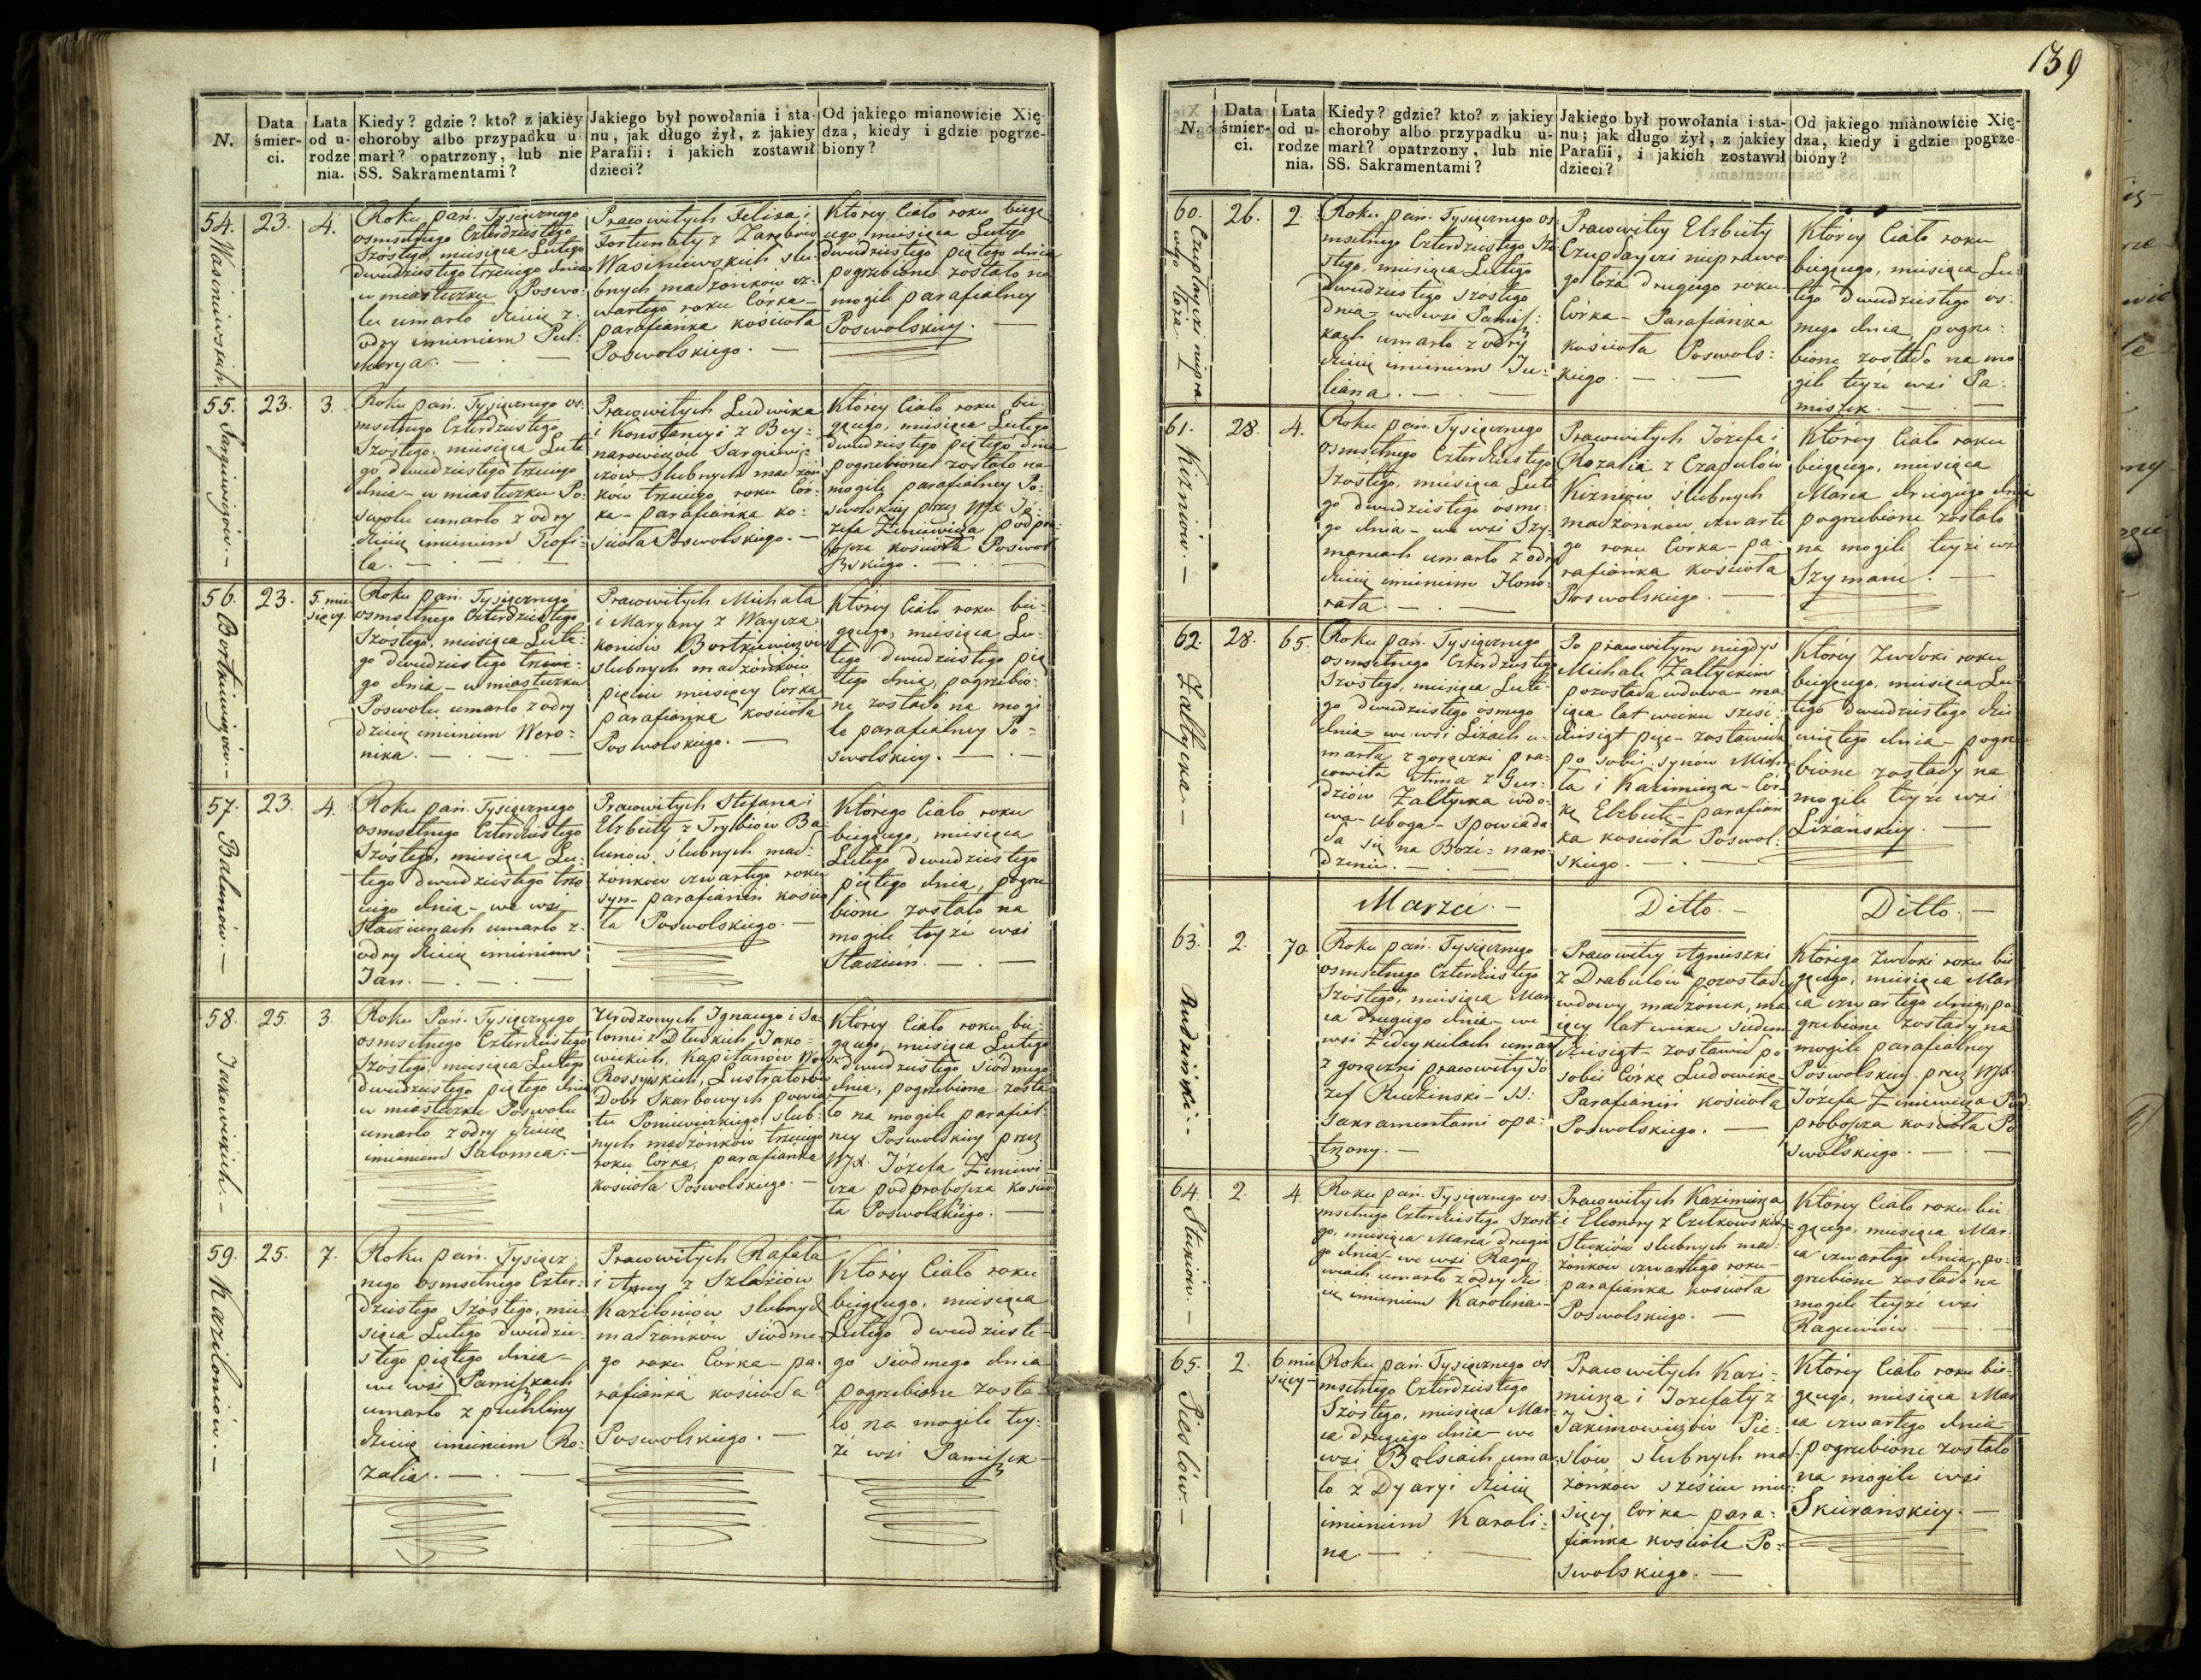 N.
Data
śmier-
ci.
Lata
od u-
rodze
nia.
Kiedy? gdzie? kto? z jakiey
choroby albo przypadku u
marł? opatrzony, lub nie
SS. Sakramentami?
Jakiego był powołania i sta-
nu, jak długo żył, z jakiey
Parafii: i jakich zostawił
dzieci?
Od jakiego mianowicie Xię-
dza, kiedy i gdzie pogrze-
biony?
54. Wasiniewskich
23.
4.
Roku pań. Tysiącznego
osmsetnego Czterdziestego
Szóstego, miesiąca Lutego
dwudziestego trzeciego dnia
w miasteczku Poswo-
lu umarło dziecię z
odry imieniem Pul-
cherya. —
Pracowitych Felixa i
Fortunaty z Zarębów
Wasiniewskich slu-
bnych madżonków cz-
wartego roku Córka —
parafianka kościoła
Poswolskiego. —
Którey Ciało roku bieżą
cego miesiąca Lutego
dwudziestego piątego dnia
pogrzebione zostało na
mogile parafialney
Poswolskiey. —
55. Sargiewiczów. —
23.
3.
Roku pań. Tysiącznego os:
msetnego Czterdziestego
Szóstego, miesiąca Lute
go dwudziestego trzeciego
dnia — w miasteczku Po:
swolu umarło z odry
dziecię imieniem Teofi:
la. —
Pracowitych Ludwika
i Konstancyi z Bey:
narowiczów Sargiewi:
czów Slubnych madżon
ków trzeciego roku Cór:
ka — parafianka ko:
ścioła Poswolskiego. —
Którey Ciało roku bie:
żącego, miesiąca Lutego
dwudziestego piątego dnia
pogrzebione zostało na
mogile parafialney Po:
swolskiey przez WJX Jó:
zefa Ziniewicza podpro:
boszcza kościoła Poswol
skiego. —
56. Bortkiewiczów. —
23.
5. mie
sięcy.
Roku pań. Tysiącznego
osmsetnego Czterdziestego
Szóstego, miesiąca Lute:
go dwudziestego trzecie:
go dnia — w miasteczku
Poswolu umarło z odry
dziecię imieniem Wero:
nika. —
Pracowitych Michała
i Maryany z Waycza
koniów Bortkiewiczów
slubnych madżonków
pięciu miesięcy Córka
parafianka kościoła
Poswolskiego. —
Którey Ciało roku bie:
żącego, miesiąca Lu:
tego dwudziestego pią
tego dnia, pogrzebio:
ne zostało na mogi
le parafialney Po:
swolskiey. —
57. Balunów. —
23.
4.
Roku pań. Tysiącznego
osmsetnego Czterdziestego
Szóstego, miesiąca Lu:
tego dwudziestego trze
ciego dnia — we wsi
Staczunach umarło z
odry dziecię imieniem
Jan. —
Pracowitych Stefana i
Elzbiety z Trybiów Ba:
lunów, slubnych mad:
żonków czwartego roku
syn — parafianin kościo
ła Poswolskiego. —
Którego Ciało roku
bieżącego, miesiąca
Lutego dwudziestego
piątego dnia, pogrze
bione zostało na
mogile teyże wsi
Staczuń. —
58. Jakowickich. —
25.
3.
Roku Pań. Tysiącznego
osmsetnego Czterdziestego
Szóstego, miesiąca Lutego
dwudziestego piątego dnia
w miasteczku Poswolu
umarło z odry dziecię
imieniem Salomea. —
Urodzonych Ignacego i Sa:
lomei z Dłuskich Jako:
wickich, Kapitanów Woysk
Rossyiskich, Lustratorów
Dobr Skarbowych powia
tu Poniewiezkiego slub:
nych madżonków trzeciego
roku Córka, parafianka
kościoła Poswolskiego. —
Którey Ciało roku bie
żącego, miesiąca Lutego
dwudziestego siódmego
dnia, pogrzebione zosta
ło na mogile parafial:
ney Poswolskiey przez
WJX. Józefa Ziniewi
cza podproboszcza kościo
ła Poswolskiego. —
59. Kaziloniów. —
25.
7.
Roku pań. Tysiącz:
nego osmsetnego Czter:
dziestego Szóstego, mie:
siąca Lutego dwudzie:
stego piątego dnia —
we wsi Pamiszkach
umarło z puchliny
dziecię imieniem Ro:
zalia. —
Pracowitych Rafała
i Anny z Szlażiów
Kaziloniów slubnych
madżonków siódme:
go roku Córka — pa:
rafianka kościoła
Poswolskiego. —
Którey Ciało roku
bieżącego, miesiąca
Lutego dwudzieste
go siódmego dnia
pogrzebione zosta
ło na mogile tey:
że wsi Pamiszek —
139
N.
Data
śmier-
ci.
Lata
od u-
rodze
nia.
Kiedy? gdzie? kto? z jakiey
choroby albo przypadku u-
marł? opatrzony, lub nie
SS. Sakramentami?
Jakiego był powołania i sta-
nu; jak długo żył, z jakiey
Parafii, i jakich zostawił
dzieci?
Od jakiego miànowicie Xię-
dza, kiedy i gdzie pogrze-
biony?
60. Czuplayczi niepra
wego łoża. —
26.
2.
Roku pań. Tysiącznego os:
msetnego Czterdziestego Szó
stego, miesiąca Lutego
dwudziestego szóstego
dnia — we wsi Pamisz:
kach umarło z odry
dziecię imieniem Ju:
liana. —
Pracowitey Elzbiety
Czuplayczi nieprawe
go łoża drugiego roku
Córka — Parafianka
kościoła Poswols:
kiego. —
Którey Ciało roku
bieżącego, miesiąca Lu:
tego dwudziestego os:
mego dnia pogrze:
bione zostało na mo
gile teyże wsi Pa:
miszek. —
61. Kizniów. —
28.
4.
Roku pań. Tysiącznego
osmsetnego Czterdziestego
Szóstego, miesiąca Lute
go dwudziestego osme:
go dnia — we wsi Szy:
maniach umarło z odry
dziecię imieniem Hono:
rata. —
Pracowitych Józefa i
Rozalii z Czapulów
Kizniów slubnych
madżonków czwarte
go roku Córka — pa:
rafianka kościoła
Poswolskiego. —
Którey Ciało roku
bieżącego, miesiąca
Marca drugiego dnia
pogrzebione zostało
na mogile teyże wsi
Szymani. —
62. Żałtycka. —
28.
65.
Roku pań. Tysiącznego
osmsetnego Czterdziestego
Szóstego, miesiąca Lute:
go dwudziestego osmego
dnia — we wsi Liżach u:
marła z gorączki pra:
cowita Anna z Gur:
dziów Żałtycka wdo:
wa — Uboga — Spowiada
ła się na Boże: naro:
dzenie. —
Po pracowitym niegdys
Michale Żałtyckim
pozostała wdowa — ma:
iąca lat wieku sześć:
dziesiąt pięć — zostawiła
po sobie synów Micha
ła i Kazimierza — Cór:
kę Elzbietę — parafian
ka kościoła Poswol:
skiego. —
Którey Zwłoki roku
bieżącego, miesiąca Lu:
tego dwudziestego dzie
wiątego dnia — pogrze
bione zostały na
mogile teyże wsi
Liżańskiey. —
Marzec. —
Ditto. —
Ditto. —
63. Rudziński. —
2.
70.
Roku pań. Tysiącznego
osmsetnego Czterdziestego
Szóstego, miesiąca Mar
ca drugiego dnia — we
wsi Zideykulach umarł
z gorączki pracowity Jó
zef Rudzinski — SS:
Sakramentami opa:
trzony. —
Pracowitey Agnieszki
z Drabulów pozostałey
wdowy madżonek, ma
iący lat wieku siedem
dziesiąt — zostawił po
sobie Córkę Ludowikę
Parafianin kościoła
Poswolskiego. —
Którego Zwłoki roku bie
żącego, miesiąca Mar
ca czwartego dnia, po:
grzebione zostały na
mogile parafialney
Poswolskiey przez WJX.
Józefa Ziniewicza Pod
proboszcza kościoła Po
swolskiego. —
64. Stukiów. —
2.
4
Roku pań. Tysiącznego os:
msetnego Czterdziestego Szoste
go, miesiąca Marca drugie
go dnia — we wsi Ragie
wiach umarło z odry dzie:
cię imieniem Karolina —
Pracowitych Kazimierza
i Eleonory z Czetkowskich
Stukiów slubnych mad:
żonków czwartego roku —
parafianka kościoła
Poswolskiego. —
Którey Ciało roku bie:
żącego, miesiąca Mar:
ca czwartego dnia, po:
grzebione zostało na
mogile teyże wsi
Ragiewiów. —
65. Pieslów. —
2.
6. mie
sięcy —
Roku pań. Tysiącznego os
msetnego Czterdziestego
Szóstego, miesiąca Mar:
ca drugiego dnia — we
wsi Bolsiach umar:
ło z Dyaryi dziecię
imieniem Karoli:
na. —
Pracowitych Kazi:
mierza i Jozefaty z
Jakimowiczów Pie:
slów slubnych mad:
żonków sześciu mie:
sięcy Córka — para:
fianka kościoła Po:
swolskiego. —
Którey Ciało roku bie:
żącego, miesiąca Mar
ca czwartego dnia
pogrzebione zostało
na mogile wsi
Skierańskiey. —